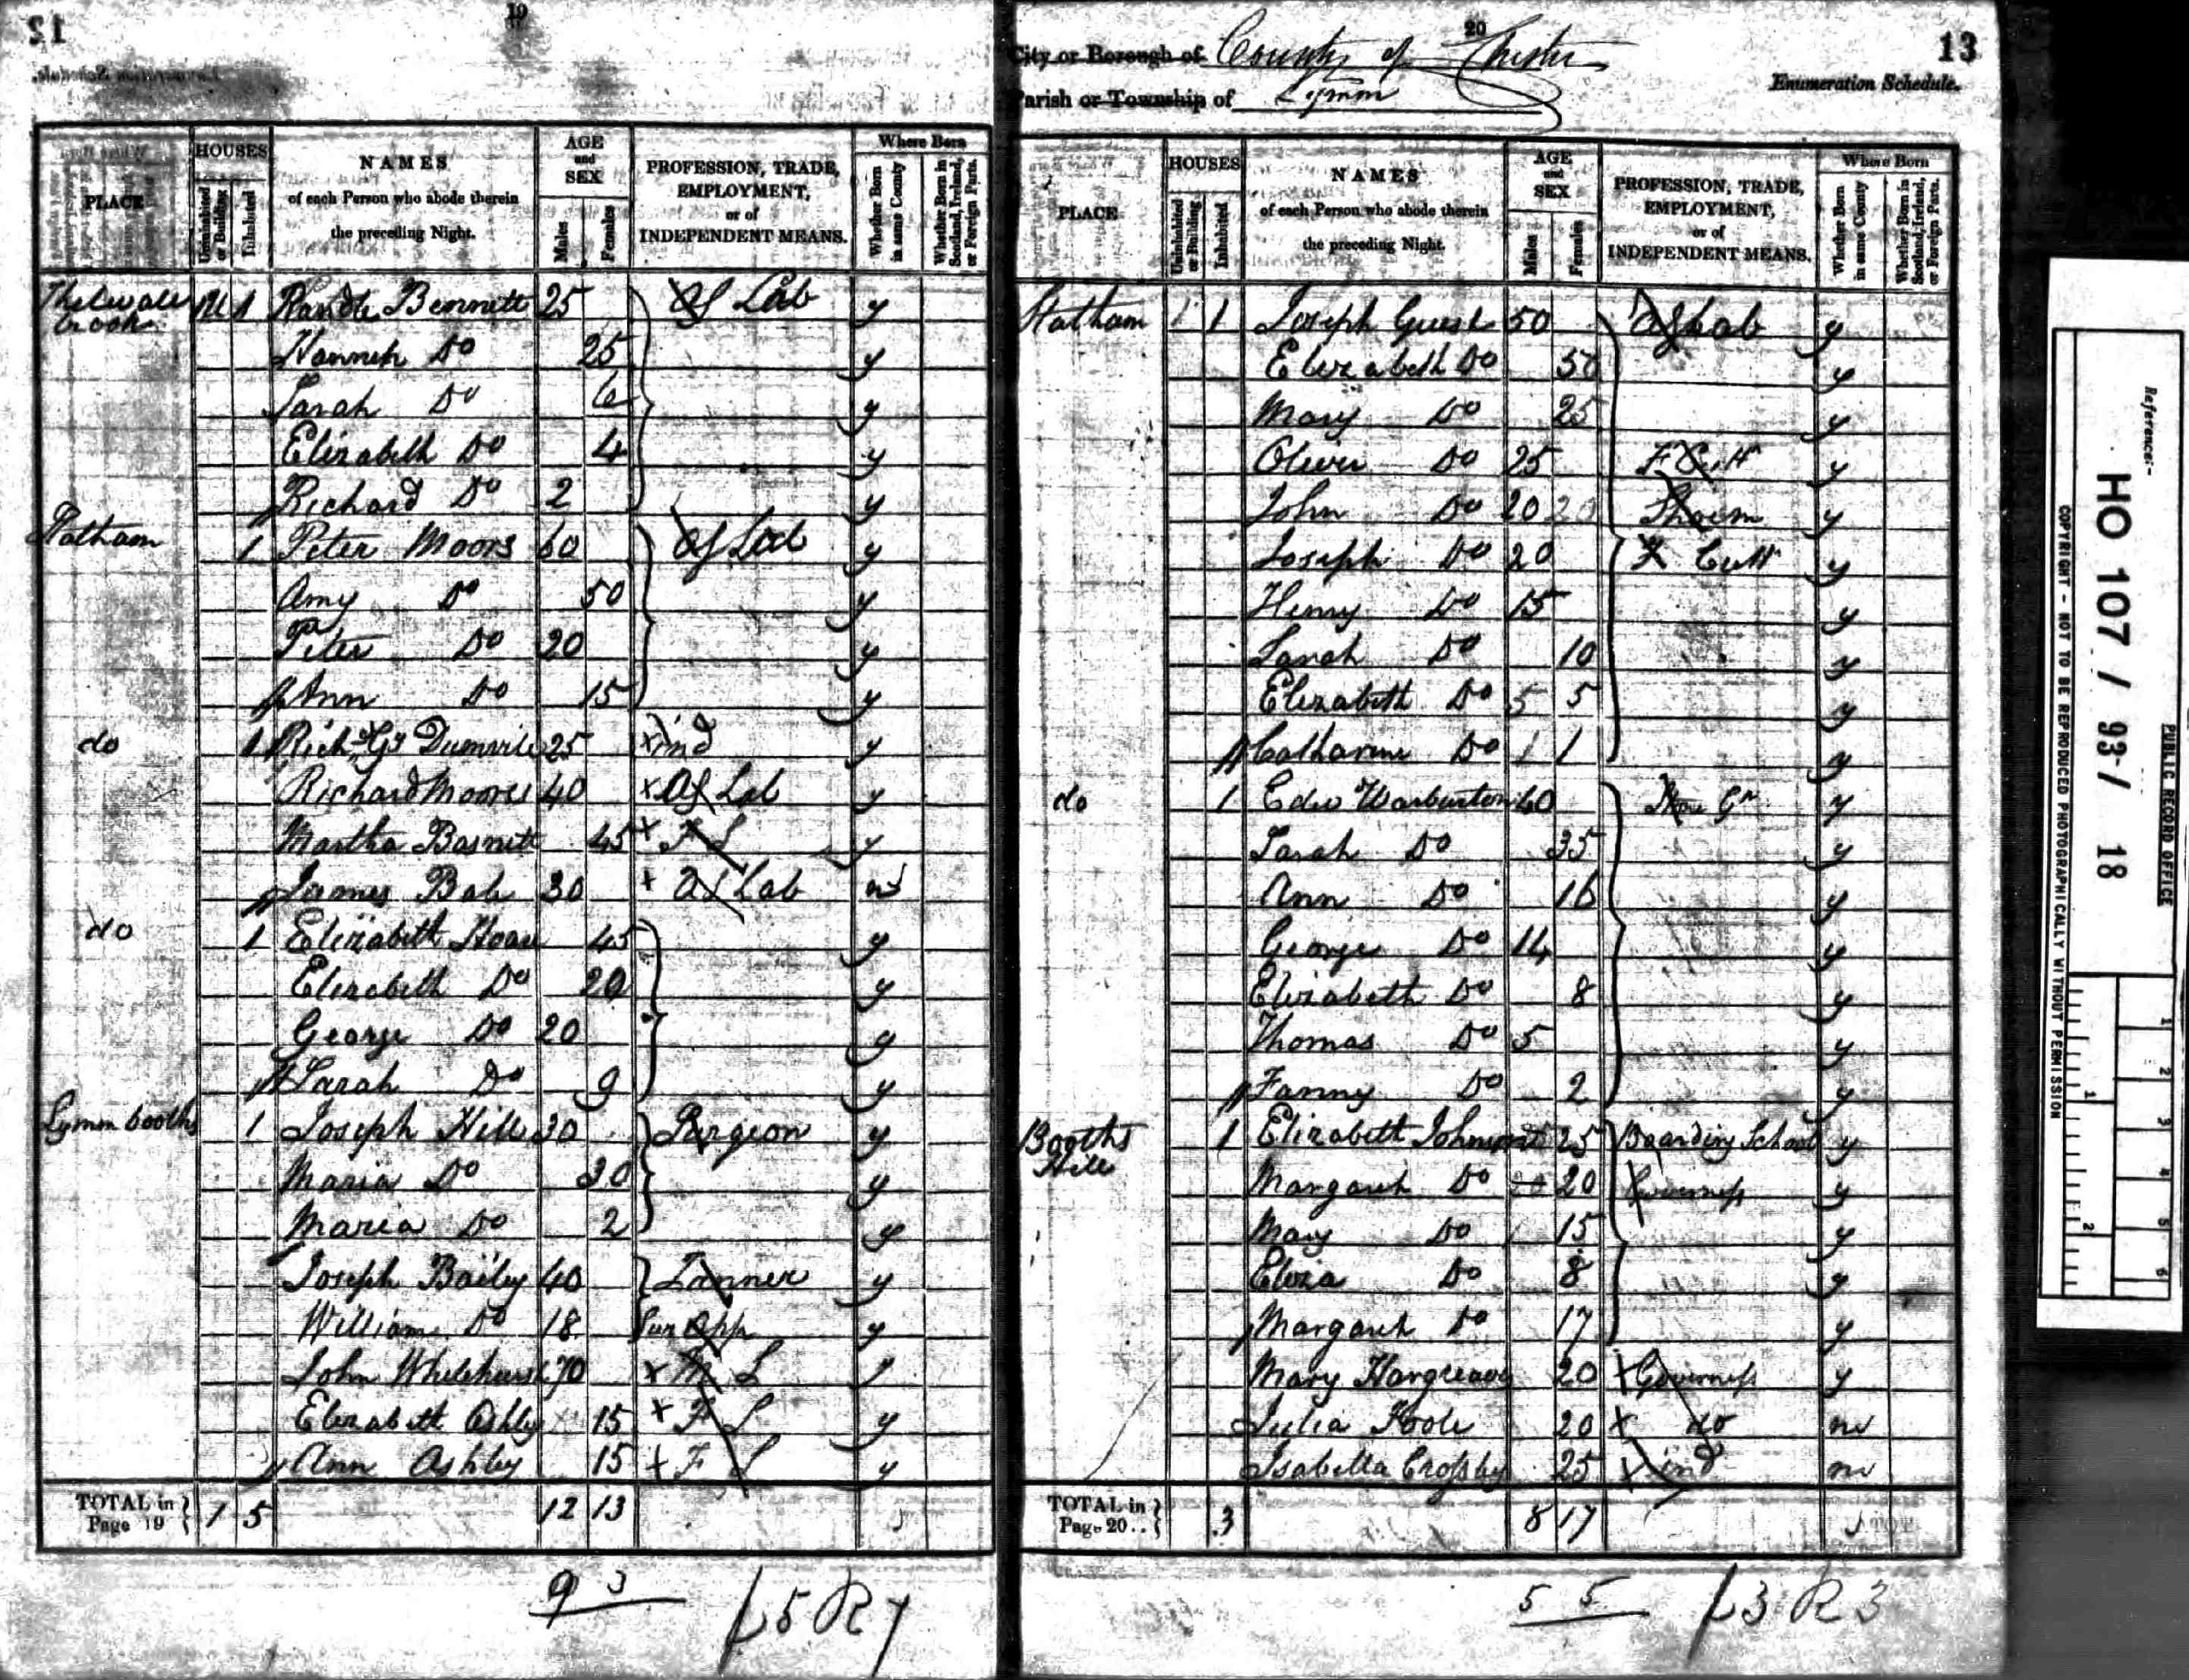 19
12
PLACE
HOUSES
Uninhabited or Building
Inhabited
NAMES
of each Person who abode therein
the preceding Night.
AGE
and
SEX
Males
Females
PROFESSION, TRADE,
EMPLOYMENT,
or of
INDEPENDENT MEANS.
Where Born
Whether Born in same County
Whether Born in Scotland, Ireland, or Foreign Parts.
1 Randle Bennett 25 Ag Lab y
Hannah Do 25 y
Sarah Do 6 y
Elizabeth Do 4 y
Richard Do 2 y
Statham 1 Peter Moors 60 Ag Lab y
Amy Do 50 y
Peter Do 20 y
Ann Do 15 y
do 1 25 ind y
Richard Moores 40 Ag Lab y
Martha Basnett 45 F S y
James 30 Ag Lab n
do 1 Elizabeth 45 y
Elizabeth Do 20 y
George Do 20 y
Sarah Do 9 y
Lymm booths 1 Joseph Hill 30 Surgeon y
Maria Do 30 y
Maria Do 2 y
Joseph Bailey 40 Tanner y
William Do 18 Sur App y
John 70
Elizabeth Ashley 15 F S y
Ann Ashley 15 F S y
TOTAL in
Page 19 1 5 12 13
9 3
20
13
City or Borough of County of Chester
Enumeration Schedule.
Parish or Township of Lymm
PLACE
HOUSES
Uninhabited or Building
Inhabited
NAMES
of each Person who abode therein
the preceding Night.
AGE
and
SEX
Males
Females
PROFESSION, TRADE,
EMPLOYMENT,
or of
INDEPENDENT MEANS.
Where Born
Whether Born in same County
Whether Born in Scotland, Ireland, or Foreign Parts.
Statham 1 1 Joseph Guest 50 Ag Lab y
Elizabeth Do 50 y
Mary Do 25 y
Oliver Do 25 F Cutt y
John Do 20 20 y
Joseph Do 20 F Cutt y
Henry Do 15 y
Sarah Do 10 y
Elizabeth Do 5 5 y
Catharine Do 1 1 y
do 1 Edw Warburton 40 y
Sarah Do 35 y
Ann Do 16 y
George Do 14 y
Elizabeth Do 8 y
Thomas Do 5 y
Fanny Do 2 y
Booths
Hill 1 Elizabeth Johnson 25 Boarding School y
Margaret Do 20 20 Governess y
Mary Do 15 y
Eliza Do 8 y
Margaret Do 17 y
Mary Hargreave 20 Governess y
Julia Poole 20 do n
Isabella Crossby 25 ind n
TOTAL in
Page 20 3 8 17
5 5
Reference:-
HO 107 / 93 / 18
PUBLIC RECORD OFFICE
COPYRIGHT - NOT TO BE REPRODUCED PHOTOGRAPHICALLY WITHOUT PERMISSION
1
2
1 2 3 4 5 6